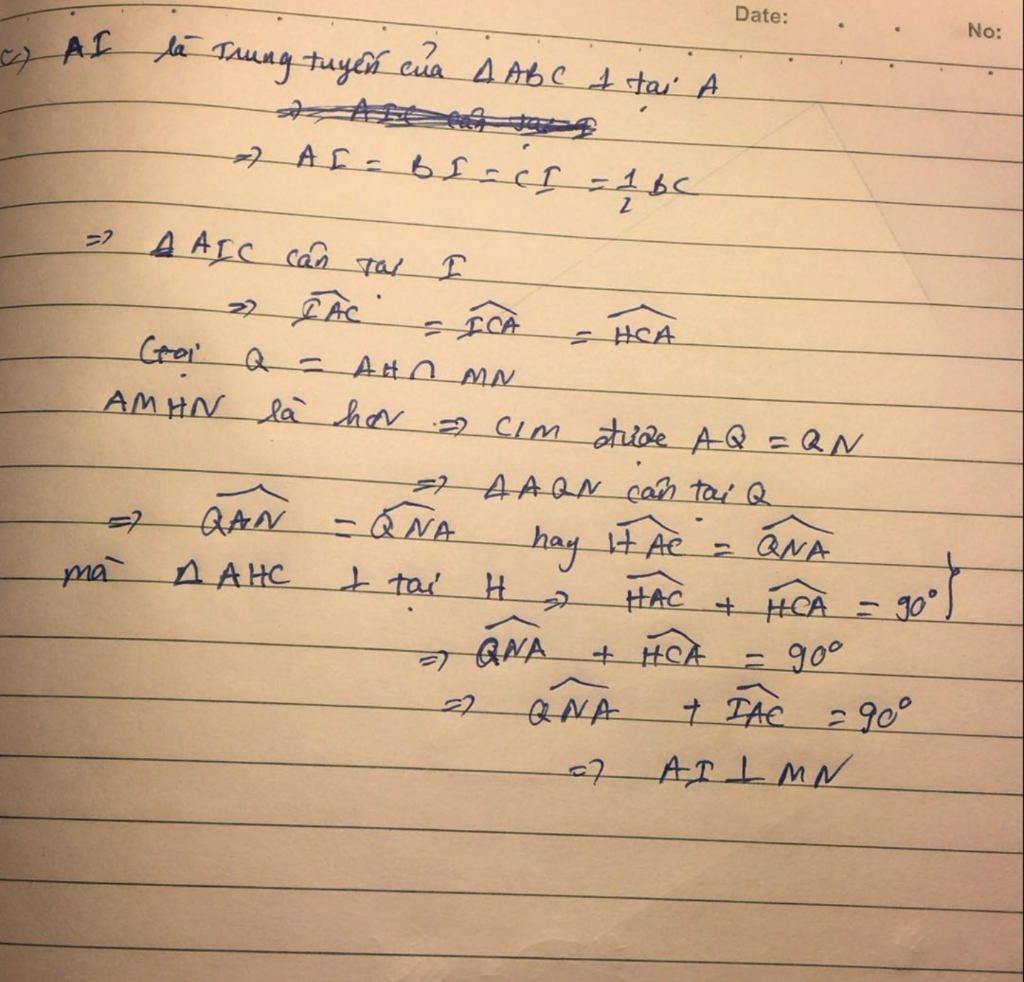 Date:
No:
c) AI là Trung tuyến của Δ ABC ⊥ tại A
⇒ AI = BI = CI = 1/2 BC
⇒ Δ AIC cân tại I
⇒ IAC = ICA = HCA
Gọi Q = AH ∩ MN
AMHN là hcN ⇒ C/M được AQ = QN
⇒ Δ AQN cân tại Q
⇒ QAN = QNA hay HAC = QNA
mà Δ AHC ⊥ tại H ⇒ HAC + HCA = 90° }
⇒ QNA + HCA = 90°
⇒ QNA + IAC = 90°
⇒ AI ⊥ MN